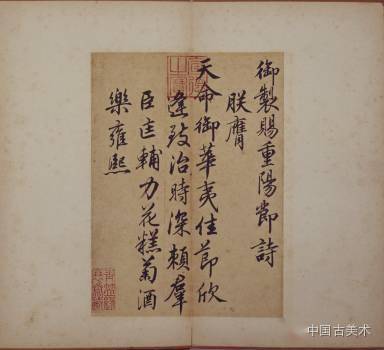 御製賜重陽節詩
朕膺
天命御華夷佳節欣
逢致治時深賴羣
臣匡輔力花糕菊酒
樂雍熙
中国古美术